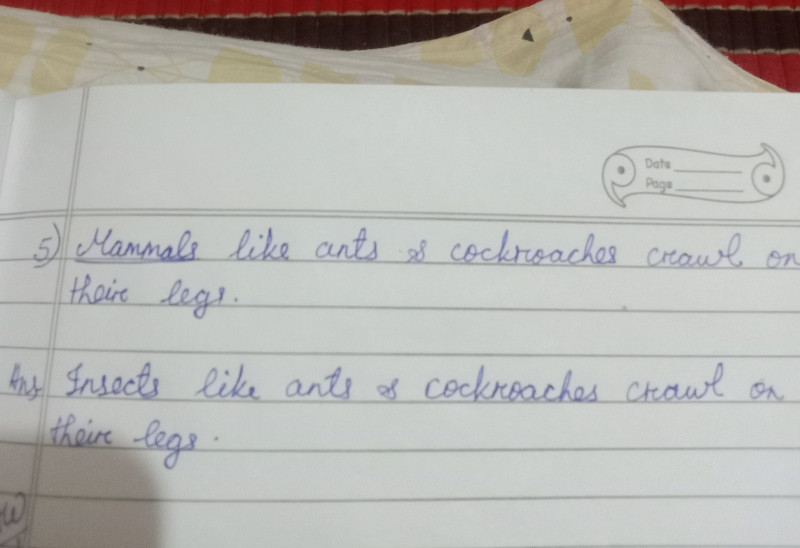 Date
Page
5) Mammals like ants & cockroaches crawl on
their legs.
Ans Insects like ants & cockroaches crawl on
their legs.